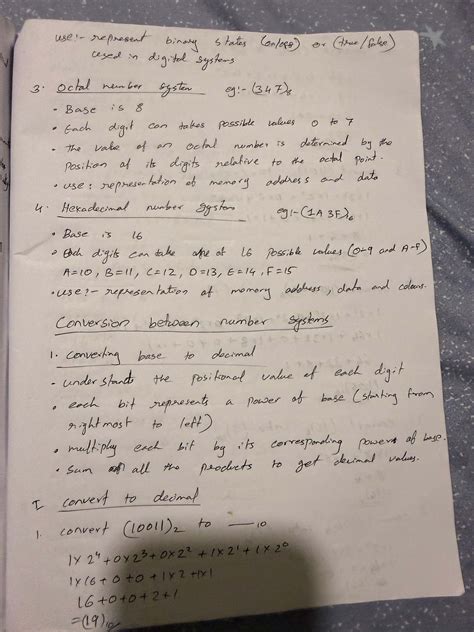 use:- represent binary states (on/off) or (true/false)
used in digital systems
3. Octal number system eg:- (347)8
• Base is 8
• Each digit can takes possible values 0 to 7
• The value of an octal number is determined by the
position of its digits relative to the octal point.
• use: representation of memory address and data
4. Hexadecimal number system eg:- (1A3F)16
• Base is 16
• Each digits can take one of 16 possible values (0-9 and A-F)
A=10, B=11, C=12, D=13, E=14, F=15
• use:- representation of memory address, data and colours.
Conversion between number systems
1. Converting base to decimal
• understands the positional value of each digit
• each bit represents a power of base (starting from
rightmost to left)
• multiply each bit by its corresponding powers of base.
• sum all the products to get decimal values.
I convert to decimal
1. convert (10011)2 to __10
1×2⁴+0×2³+0×2²+1×2¹+1×2⁰
1×16+0+0+1×2+1×1
16+0+0+2+1
=(19)10